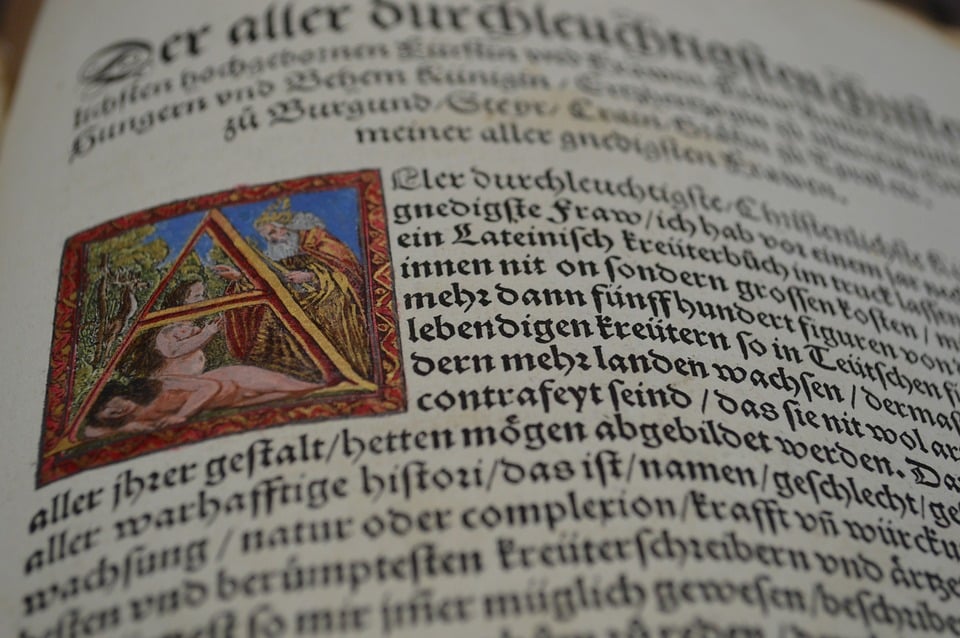 Der aller durchleuchtigſten Chriſte
lichſten hochgebornen Fürſtin vnd Frawen
Hungern vnd Behem Künigin / zů
zů Burgund / Steyr / Crain
meiner aller gnedigſten Frawen.
ALler durchleuchtigſte / Chriſtenlichſte
gnedigſte Fraw / ich hab vor einem jar
ein Lateiniſch kreüterbůch im truck laſſen
innen nit on ſondern groſſen koſten / m
mehr dann fünff hundert figuren von
lebendigen kreütern ſo in Teütſchen
dern mehr landen wachſen / dermaſ
contrafeyt ſeind / das ſie nit wol ar
aller jhrer geſtalt / hetten mögen abgebildet werden. Da
aller warhafftige hiſtori / das iſt / namen / geſchlecht / ge
wachſung / natur oder complexion / krafft vñ würcku
beſten vnd berümpteſten kreüterſchreibern vnd ärtze
ſo mir jm̃er müglich geweſen / beſchribe